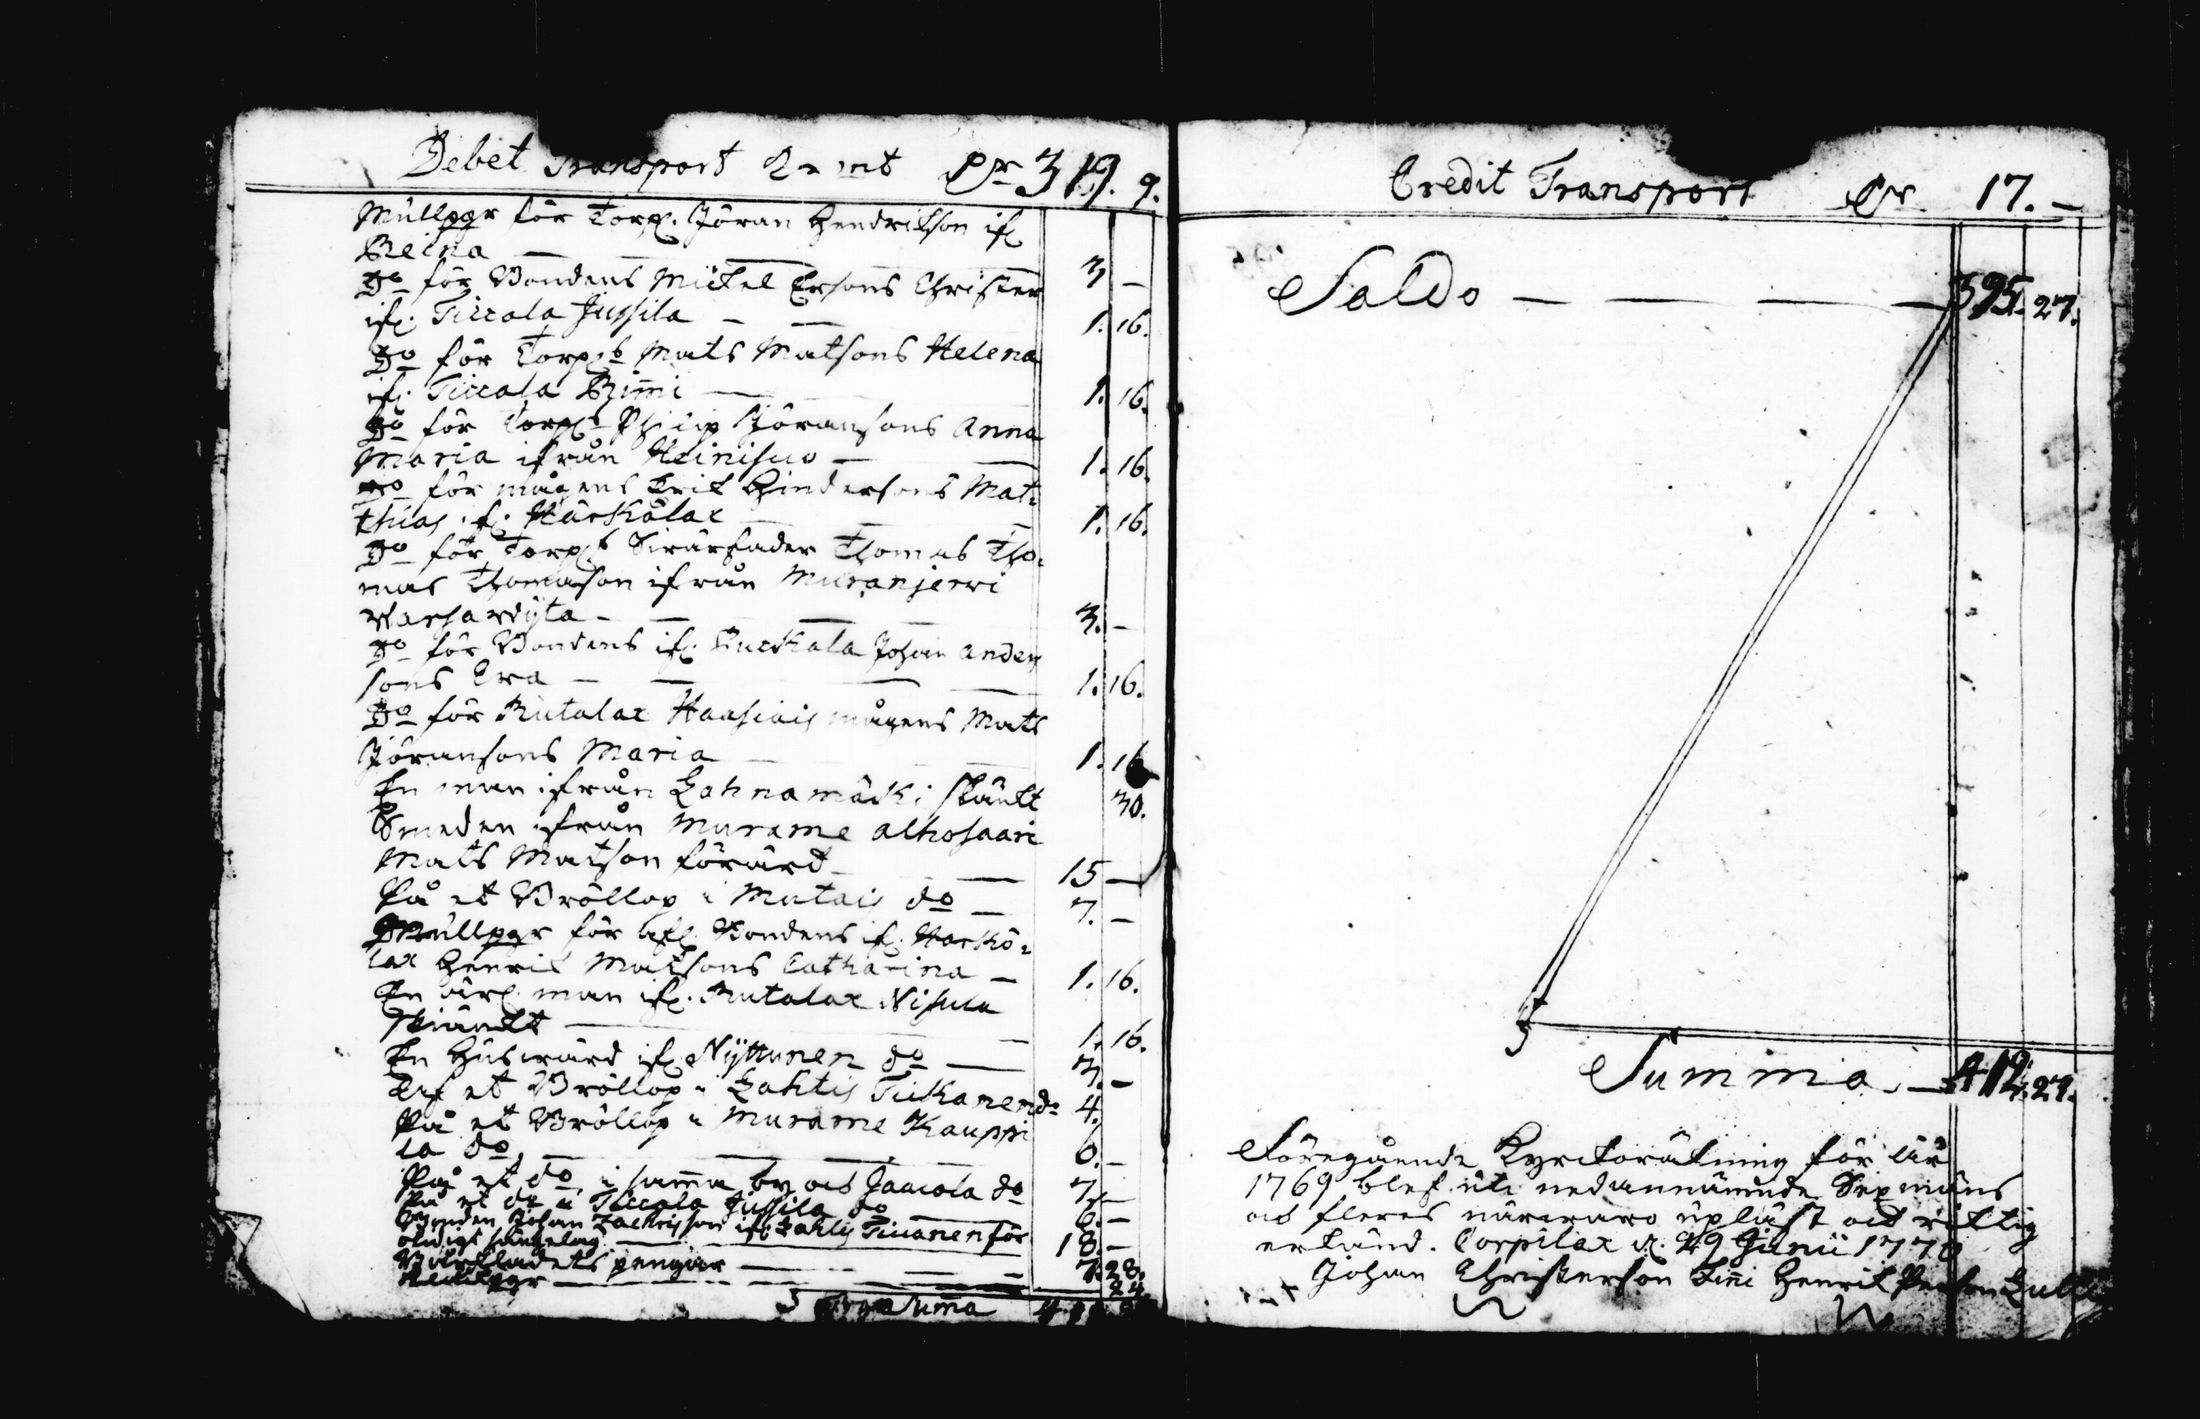 Debet Transport Kr mt Dr 319. 9.
Mullpgr för Torp. Jöran Hendrikson ifr
Reina — 3 —
Do för Bondens Mickel Ersons Christer
ifr. Ticcala Jussila — 1. 16.
Do för Torps Mats Matsons Helena
ifr. Ticcala Rimi — 1. 16.
Do för Torps Philip Jöransons Anna
Maria ifrån Heinisuo — 1. 16.
Do för mågens Erik Hindersons Mat=
thias ifr. Härkälax — 1. 16.
Do för Torps Swärfader Thomas Tho=
mas Thomason ifrån Muranjerwi
3. —
Do för Bondens ifr. Kurkala Johan Anders
sons Ewa — 1. 16.
Do för Rutalax Haasiais mågens Mats
Jöransons Maria — 1. 16
En man ifrån Lahnamäcki skänkt 30.
Smeden ifrån Murame Alhosaari
Mats Matson förärd — 15 —
På et Bröllop i Mutais do — 7. —
Mullpgr för Bondens ifr. Harkö=
lax Henrik Matsons Catharina — 1. 16.
En ärl. man ifr. Rutalax Nisula
skiänckt — 1. 16.
En Huswärd ifr Nyttunen do — 3. —
På et Bröllop i Lahtis Tiikanen do 4.
På et Bröllop i Murame Kauppi
la do — 6. —
På et do i samma by os Jaacola do 7. —
På et do i Ticcala Jussila do 6. —
Bonden Johan Zachrisson ifr. Lahtis Tiicanen för
18. —
pengar — 7. 28.
24
Summa
Credit Transport Dr 17. —
Saldo — 395. 27.
Summa — 412. 27.
Föregående Kyrkoräkning för år
1769 blef uti nedannämde Sexmäns
och fleres närwaro upläst och richtig
erkänd. Corpilax d. 29 Junii 1770
Johan Christerson Henrik